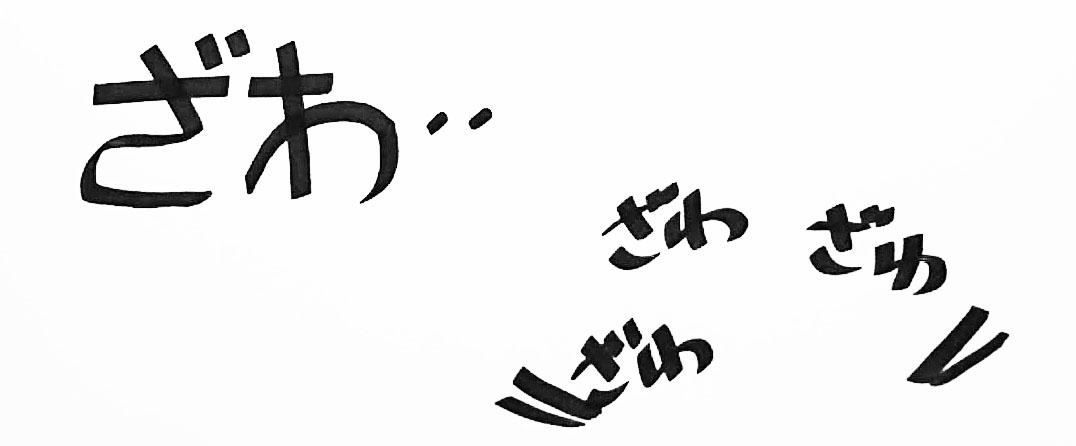 ざわ‥
ざわ ざわ
ざわ